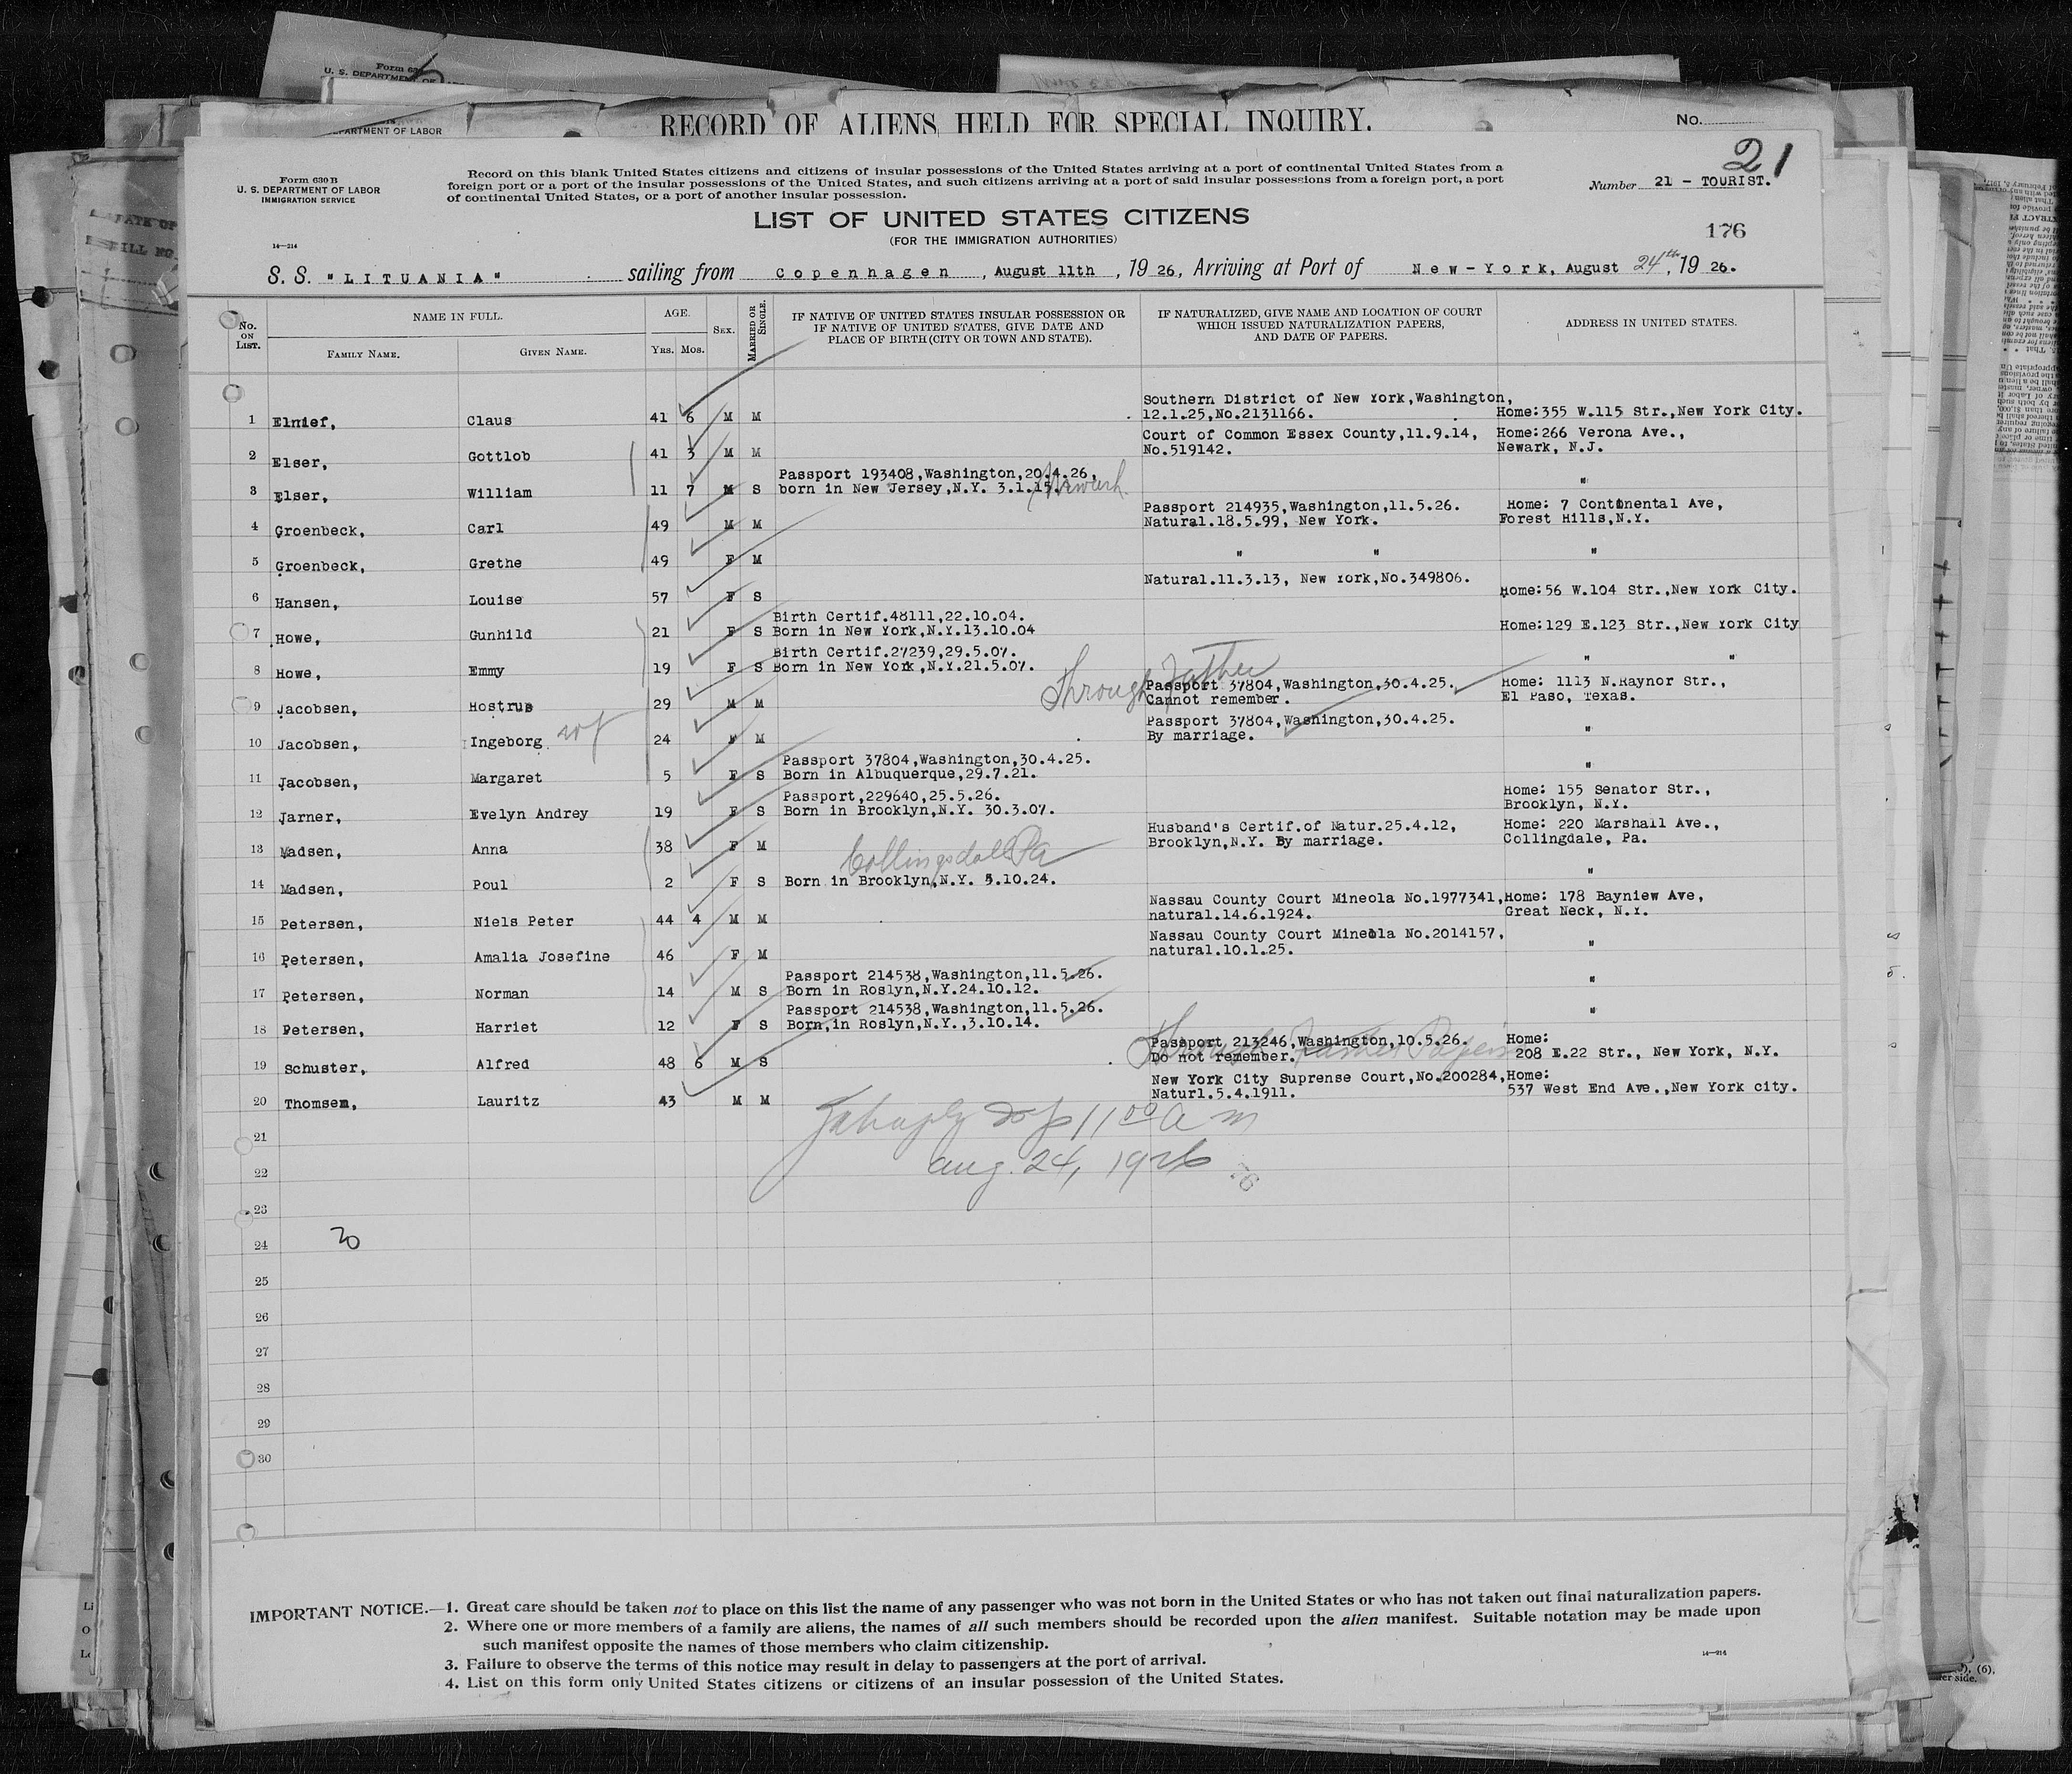 Form 630
U. S. DEPARTMENT OF
DEPARTMENT OF LABOR
RECORD OF ALIENS HELD FOR SPECIAL INQUIRY.
No.
21
Form 630 B
U. S. DEPARTMENT OF LABOR
IMMIGRATION SERVICE
Record on this blank United States citizens and citizens of insular possessions of the United States arriving at a port of continental United States from a
foreign port or a port of the insular possessions of the United States, and such citizens arriving at a port of said insular possessions from a foreign port, a port
of continental United States, or a port of another insular possession.
Number 21 - TOURIST.
LIST OF UNITED STATES CITIZENS
(FOR THE IMMIGRATION AUTHORITIES)
176
14—214
S. S. "LITUANIA" sailing from Copenhagen, August 11th, 1926, Arriving at Port of New-York, August 24th, 1926.
No. ON LIST.
NAME IN FULL.
FAMILY NAME.
GIVEN NAME.
AGE.
YRS. MOS.
SEX.
MARRIED OR SINGLE.
IF NATIVE OF UNITED STATES INSULAR POSSESSION OR
IF NATIVE OF UNITED STATES, GIVE DATE AND
PLACE OF BIRTH (CITY OR TOWN AND STATE).
IF NATURALIZED, GIVE NAME AND LOCATION OF COURT
WHICH ISSUED NATURALIZATION PAPERS,
AND DATE OF PAPERS.
ADDRESS IN UNITED STATES.
Southern District of New York,Washington,
1 Elnief, Claus 41 6 M M 12.1.25,No.2131166. Home:355 W.115 Str.,New York City.
Court of Common Essex County,11.9.14, Home:266 Verona Ave.,
2 Elser, Gottlob 41 3 M M No.519142. Newark, N.J.
Passport 193408,Washington,20.4.26,
3 Elser, William 11 7 M S born in New Jersey,N.Y. 3.1.15. Newark "
Passport 214935,Washington,11.5.26. Home: 7 Continental Ave,
4 Groenbeck, Carl 49 M M Natural.18.5.99, New York. Forest Hills,N.Y.
5 Groenbeck, Grethe 49 F M " " "
Natural.11.3.13, New York,No.349806.
6 Hansen, Louise 57 F S Home:56 W.104 Str.,New York City.
Birth Certif.48111,22.10.04.
7 Howe, Gunhild 21 F S Born in New York,N.Y.13.10.04 Home:129 E.123 Str.,New York City
Birth Certif.27239,29.5.07.
8 Howe, Emmy 19 F S Born in New York,N.Y.21.5.07. " "
Through Father
Passport 37804,Washington,30.4.25. Home: 1113 N.Raynor Str.,
9 Jacobsen, Hostrup 29 M M Cannot remember. El Paso, Texas.
Passport 37804,Washington,30.4.25.
10 Jacobsen, Ingeborg 24 F M By marriage. "
Passport 37804,Washington,30.4.25.
11 Jacobsen, Margaret 5 F S Born in Albuquerque,29.7.21. "
Passport,229640,25.5.26. Home: 155 Senator Str.,
12 Jarner, Evelyn Andrey 19 F S Born in Brooklyn,N.Y. 30.3.07. Brooklyn, N.Y.
Husband's Certif.of Natur.25.4.12, Home: 220 Marshall Ave.,
13 Madsen, Anna 38 F M Brooklyn,N.Y. By marriage. Collingdale, Pa.
Collingsdale Pa
14 Madsen, Poul 2 F S Born in Brooklyn,N.Y. 5.10.24. "
Nassau County Court Mineola No.1977341, Home: 178 Bayniew Ave,
15 Petersen, Niels Peter 44 4 M M natural.14.6.1924. Great Neck, N.Y.
Nassau County Court Mineola No.2014157,
16 Petersen, Amalia Josefine 46 F M natural.10.1.25. "
Passport 214538,Washington,11.5.26.
17 Petersen, Norman 14 M S Born in Roslyn,N.Y.24.10.12. "
Passport 214538,Washington,11.5.26.
18 Petersen, Harriet 12 F S Born,in Roslyn,N.Y.,3.10.14. "
Through Father Papers
Passport 213246,Washington,10.5.26. Home:
19 Schuster, Alfred 48 6 M S Do not remember. 208 E.22 Str., New York, N.Y.
New York City Suprense Court,No.200284, Home:
20 Thomsen, Lauritz 43 M M Naturl.5.4.1911. 537 West End Ave.,New York city.
11 00 a m
21
22 Aug. 24, 1926
23
24 20
25
26
27
28
29
30
IMPORTANT NOTICE.—1. Great care should be taken not to place on this list the name of any passenger who was not born in the United States or who has not taken out final naturalization papers.
2. Where one or more members of a family are aliens, the names of all such members should be recorded upon the alien manifest. Suitable notation may be made upon
such manifest opposite the names of those members who claim citizenship.
3. Failure to observe the terms of this notice may result in delay to passengers at the port of arrival.
4. List on this form only United States citizens or citizens of an insular possession of the United States.
14—214